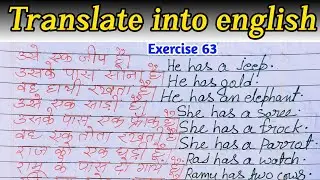 Translate into english
Exercise 63
उसे एक जीप है। He has a Jeep.
उसके पास सोना है। He has gold.
वह हाथी रखता है। He has an elephant.
उसे एक साड़ी है। She has a saree.
उसके पास एक फ्रॉक है। She has a frock.
वह एक तोता रखती है। She has a Parrot.
राज को एक घड़ी है। Raj has a watch.
रामू के पास दो गायें Ramu has two cows.